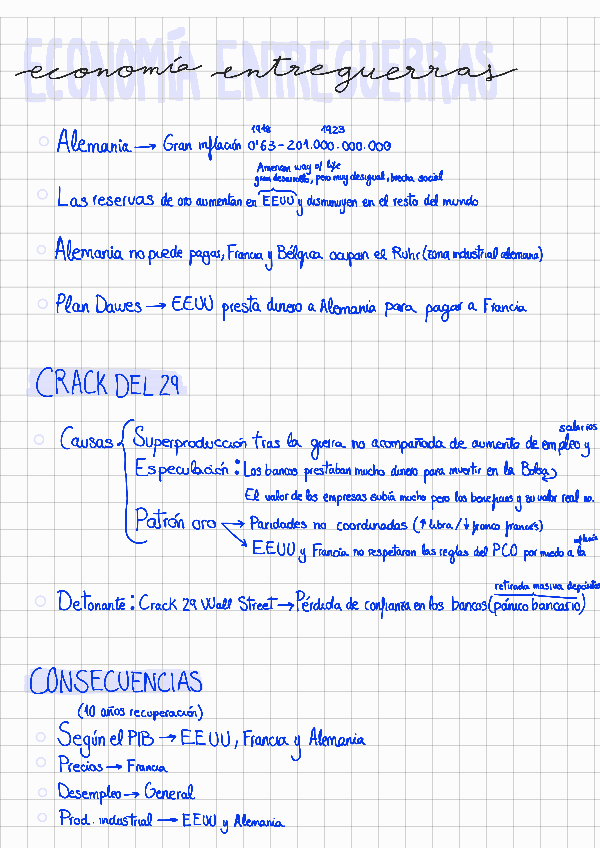 ECONOMÍA ENTREGUERRAS
economía entreguerras
1918 1923
Alemania → Gran inflación 0'63 - 201.000.000.000
American way of life
gran desarrollo, pero muy desigual, brecha social
Las reservas de oro aumentan en EEUU y disminuyen en el resto del mundo
Alemania no puede pagar, Francia y Bélgica ocupan el Ruhr (zona industrial alemana)
Plan Dawes → EEUU presta dinero a Alemania para pagar a Francia
CRACK DEL 29
salarios
Causas { Superproducción tras la guerra no acompañada de aumento de empleo y
Especulación: Los bancos prestaban mucho dinero para invertir en la Bolsa
El valor de las empresas subía mucho pero los beneficios y su valor real no.
Patrón oro → Paridades no coordinadas (↑ libra / ↓ franco francés)
→ EEUU y Francia no respetaron las reglas del PCO por miedo a la inflación
retirada masiva depósitos
Detonante: Crack 29 Wall Street → Pérdida de confianza en los bancos (pánico bancario)
CONSECUENCIAS
(10 años recuperación)
Según el PIB → EEUU, Francia y Alemania
Precios → Francia
Desempleo → General
Prod. industrial → EEUU y Alemania